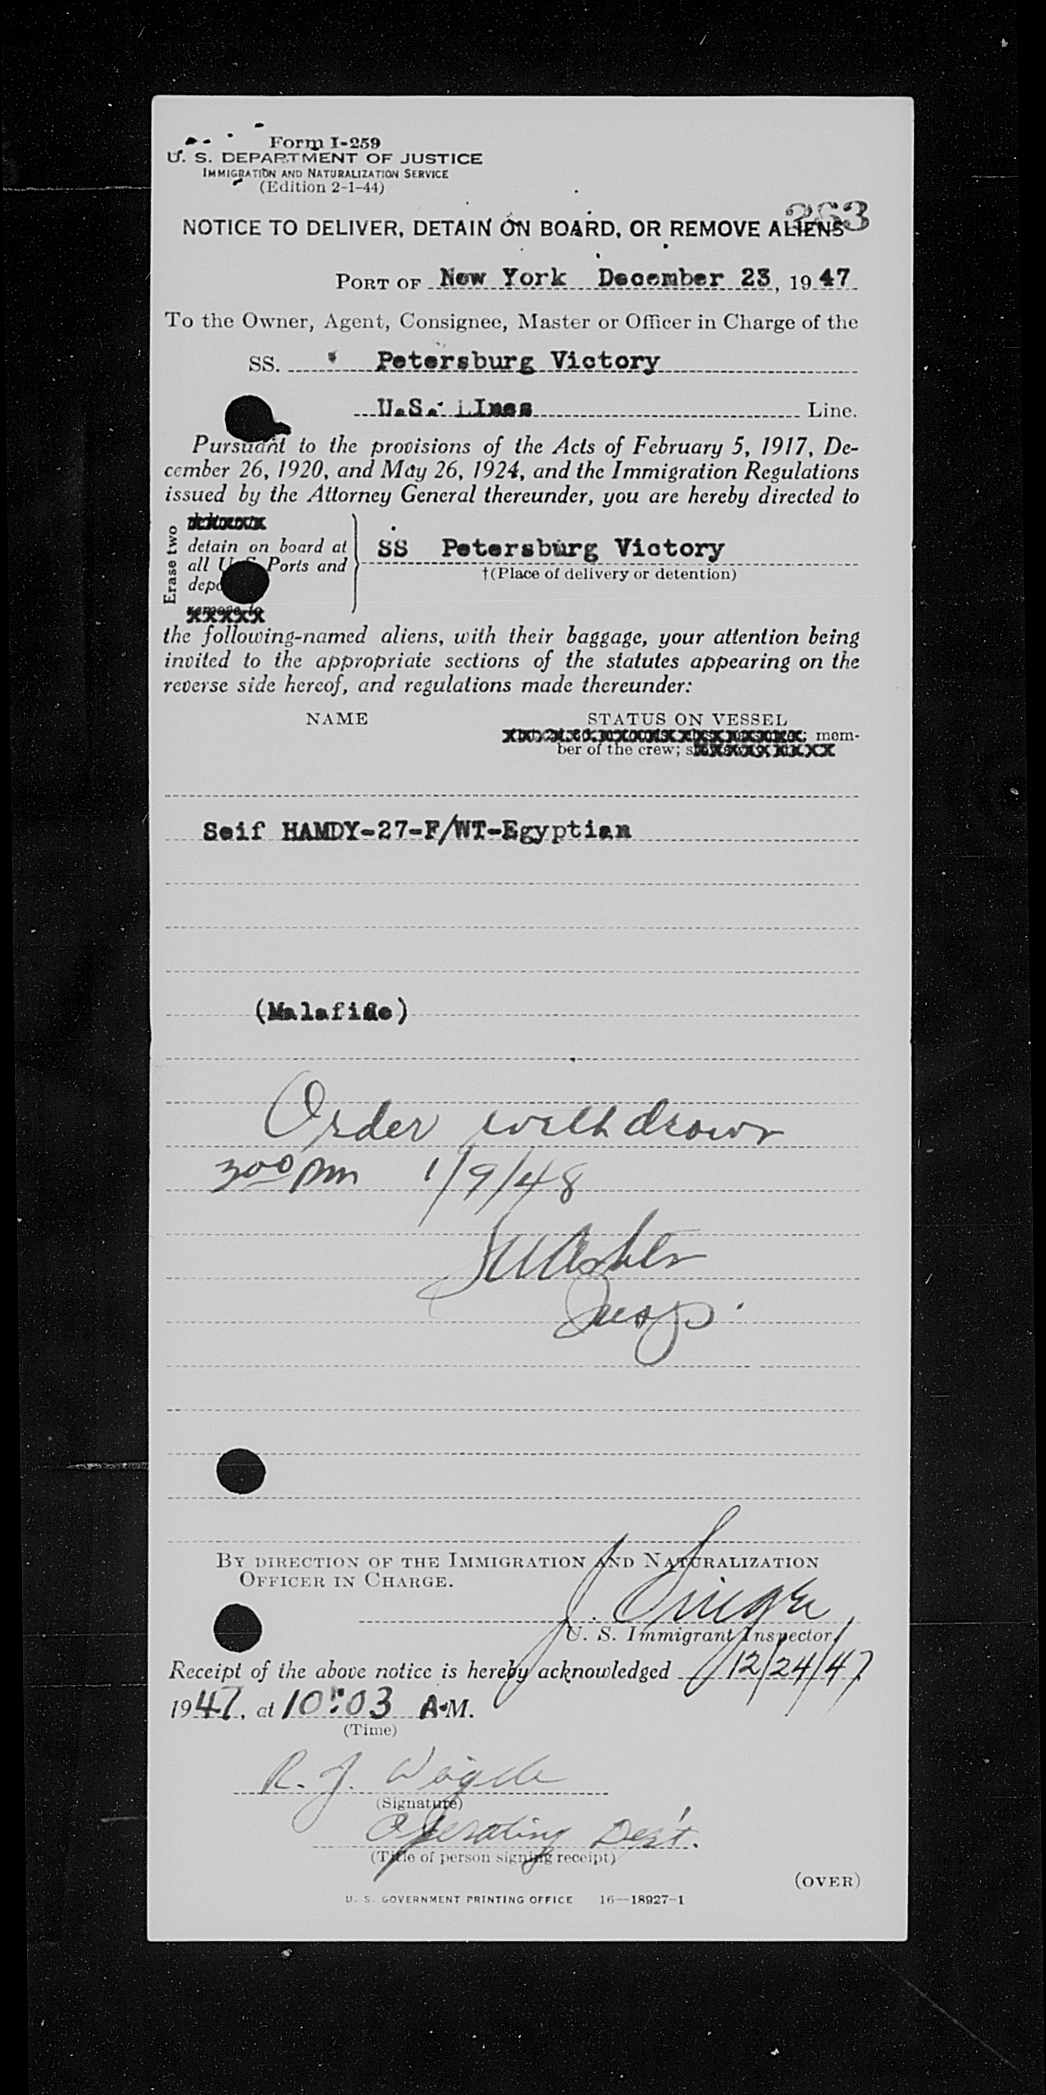 Form I-259
U. S. DEPARTMENT OF JUSTICE
IMMIGRATION AND NATURALIZATION SERVICE
(Edition 2-1-44)
363
NOTICE TO DELIVER, DETAIN ON BOARD, OR REMOVE ALIENS
PORT OF New York December 23, 1947
To the Owner, Agent, Consignee, Master or Officer in Charge of the
SS. Petersburg Victory
U.S. Lines Line.
Pursuant to the provisions of the Acts of February 5, 1917, De-
cember 26, 1920, and May 26, 1924, and the Immigration Regulations
issued by the Attorney General thereunder, you are hereby directed to
Erase two
detain on board at
all U. S. Ports and
SS Petersburg Victory
†(Place of delivery or detention)
remove to
the following-named aliens, with their baggage, your attention being
invited to the appropriate sections of the statutes appearing on the
reverse side hereof, and regulations made thereunder:
NAME STATUS ON VESSEL
mem-
ber of the crew;
Seif HAMDY-27-F/WT-Egyptian
(Malafide)
Order withdrawn
3 00 pm 1/9/48
Insp.
BY DIRECTION OF THE IMMIGRATION AND NATURALIZATION
OFFICER IN CHARGE.
U. S. Immigrant Inspector.
Receipt of the above notice is hereby acknowledged 12/24/47,
1947, at 10:03 A.M.
(Time)
R. J.
(Signature)
Operating Dep't.
(Title of person signing receipt)
(OVER)
U. S. GOVERNMENT PRINTING OFFICE 16—18927-1